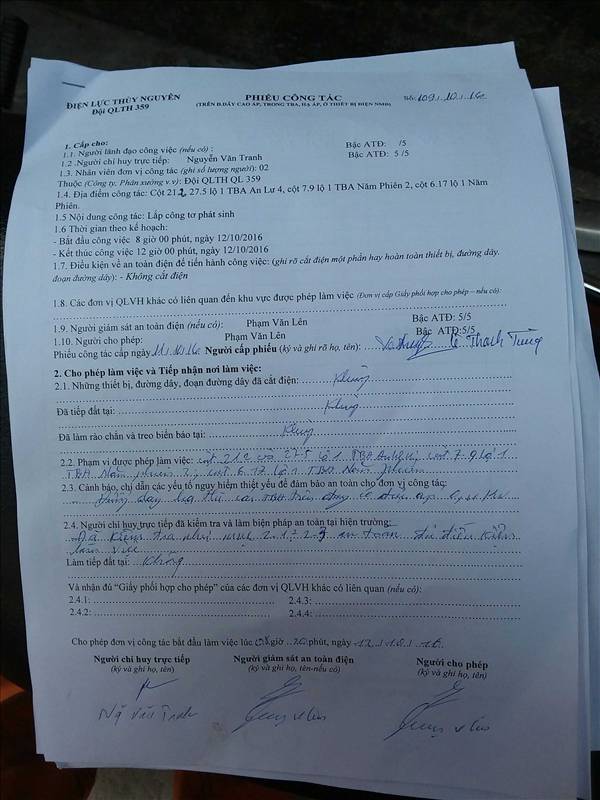 ĐIỆN LỰC THỦY NGUYÊN
Đội QLTH 359
PHIẾU CÔNG TÁC
(TRÊN Đ.DÂY CAO ÁP, TRONG TBA, HẠ ÁP, Ở THIẾT BỊ ĐIỆN NMĐ)
Số: 109/10/16
1. Cấp cho:
1.1. Người lãnh đạo công việc (nếu có) : Bậc ATĐ: /5
1.2 .Người chỉ huy trực tiếp: Nguyễn Văn Tranh Bậc ATĐ: 5 /5
1.3. Nhân viên đơn vị công tác (ghi số lượng người): 02
Thuộc (Công ty, Phân xưởng v.v): Đội QLTH QL 359
1.4. Địa điểm công tác: Cột 21.2, 27.5 lộ 1 TBA An Lư 4, cột 7.9 lộ 1 TBA Năm Phiên 2, cột 6.17 lộ 1 Năm
Phiên.
1.5 Nội dung công tác: Lắp công tơ phát sinh
1.6 Thời gian theo kế hoạch:
- Bắt đầu công việc 8 giờ 00 phút, ngày 12/10/2016
- Kết thúc công việc 12 giờ 00 phút, ngày 12/10/2016
1.7. Điều kiện về an toàn điện để tiến hành công việc: (ghi rõ cắt điện một phần hay hoàn toàn thiết bị, đường dây,
đoạn đường dây): - Không cắt điện
1.8. Các đơn vị QLVH khác có liên quan đến khu vực được phép làm việc (Đơn vị cấp Giấy phối hợp cho phép – nếu có):
1.9. Người giám sát an toàn điện (nếu có): Phạm Văn Lên Bậc ATĐ: 5/5
1.10. Người cho phép: Phạm Văn Lên Bậc ATĐ:5/5
Phiếu công tác cấp ngày 11/10/16 Người cấp phiếu (ký và ghi rõ họ, tên): Thanh Tùng
2. Cho phép làm việc và Tiếp nhận nơi làm việc:
2.1. Những thiết bị, đường dây, đoạn đường dây đã cắt điện: Không
Đã tiếp đất tại: Không
Đã làm rào chắn và treo biển báo tại: Không
2.2. Phạm vi được phép làm việc: cột 21.2 27.5 lộ 1 TBA An Lư, cột 7.9 lộ 1
TBA Năm Phiên 2, cột 6.17 lộ 1 TBA Năm Phiên
2.3. Cảnh báo, chỉ dẫn các yếu tố nguy hiểm thiết yếu để đảm bảo an toàn cho đơn vị công tác:
Đường dây hạ thế TBA trên đang có điện
2.4. Người chỉ huy trực tiếp đã kiểm tra và làm biện pháp an toàn tại hiện trường:
Đã kiểm tra như mục 2.1, 2.3 an toàn đủ điều kiện
làm việc
Làm tiếp đất tại: Không
Và nhận đủ “Giấy phối hợp cho phép” của các đơn vị QLVH khác có liên quan (nếu có):
2.4.1: 2.4.3:
2.4.2: 2.4.4:
Cho phép đơn vị công tác bắt đầu làm việc lúc 08 giờ 20 phút, ngày 12/10/16
Người chỉ huy trực tiếp Người giám sát an toàn điện Người cho phép
(ký và ghi họ, tên) (ký và ghi họ, tên-nếu có) (ký và ghi họ, tên)
Ng Văn Tranh Phạm V Lên Phạm V Lên